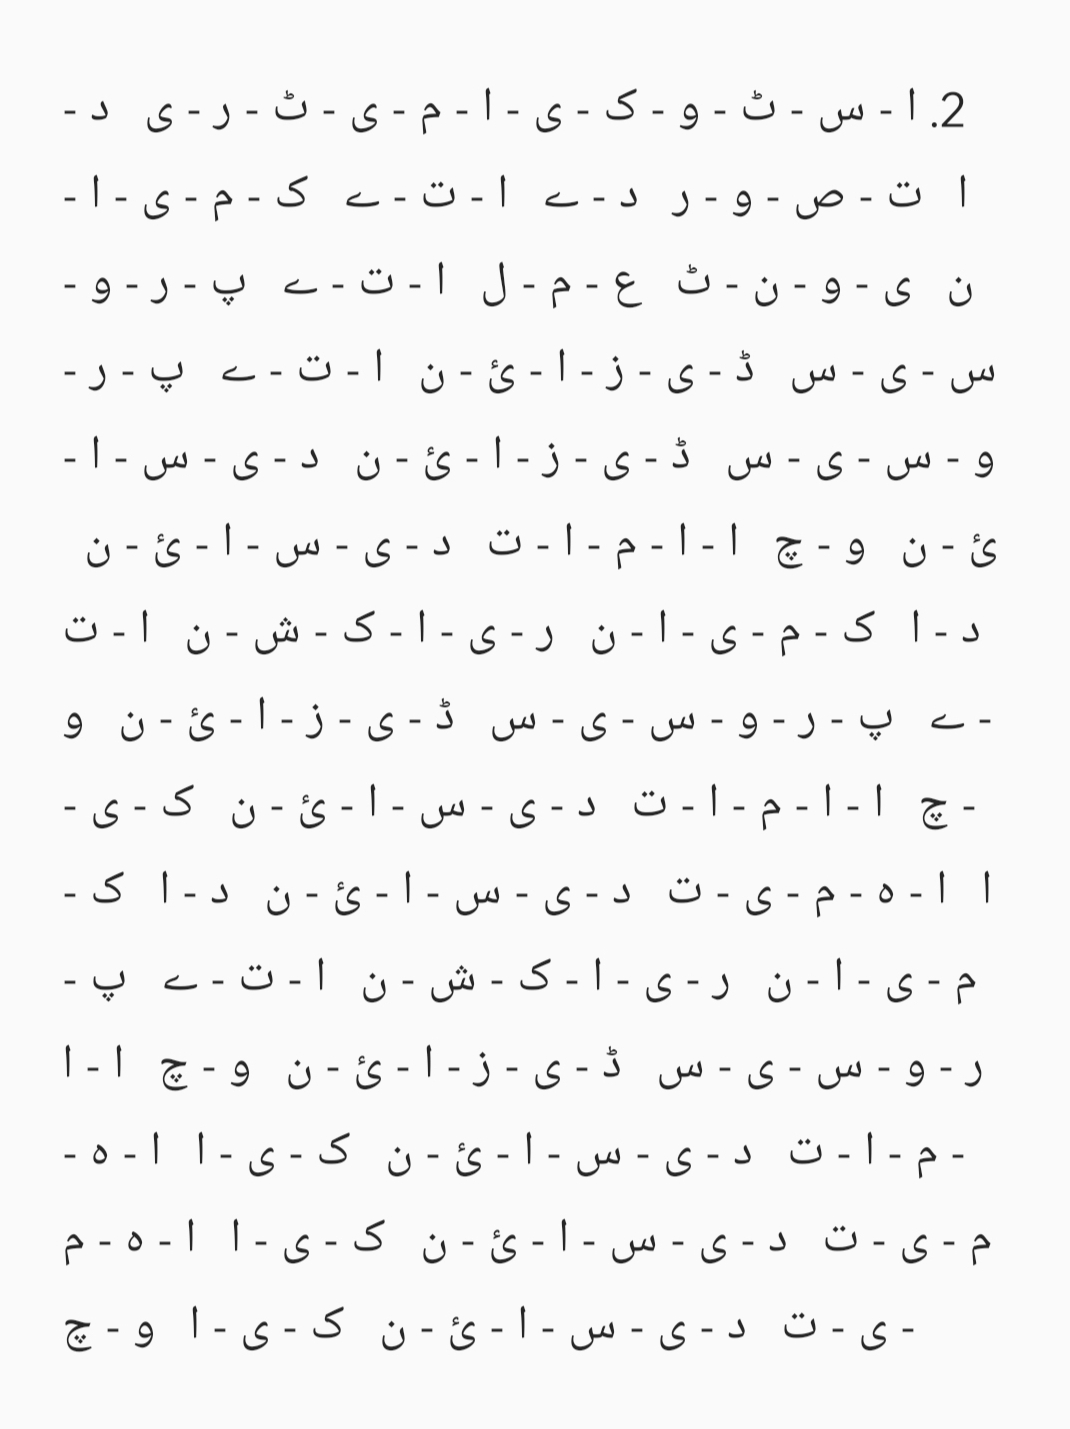 2. ا - س - ٹ - و - ک - ی - ا - م - ی - ٹ - ر - ی د -
ا ت - ص - و - ر د - ے ا - ت - ے ک - م - ی - ا -
ن ی - و - ن - ٹ ع - م - ل ا - ت - ے پ - ر - و -
س - ی - س ڈ - ی - ز - ا - ئ - ن ا - ت - ے پ - ر -
و - س - ی - س ڈ - ی - ز - ا - ئ - ن د - ی - س - ا -
ئ - ن و - چ ا - ا - م - ا - ت د - ی - س - ا - ئ - ن
د - ا ک - م - ی - ا - ن ر - ی - ا - ک - ش - ن ا - ت
- ے پ - ر - و - س - ی - س ڈ - ی - ز - ا - ئ - ن و
- چ ا - ا - م - ا - ت د - ی - س - ا - ئ - ن ک - ی -
ا ا - ہ - م - ی - ت د - ی - س - ا - ئ - ن د - ا ک -
م - ی - ا - ن ر - ی - ا - ک - ش - ن ا - ت - ے پ -
ر - و - س - ی - س ڈ - ی - ز - ا - ئ - ن و - چ ا - ا
- م - ا - ت د - ی - س - ا - ئ - ن ک - ی - ا ا - ہ -
م - ی - ت د - ی - س - ا - ئ - ن ک - ی - ا ا - ہ - م
- ی - ت د - ی - س - ا - ئ - ن ک - ی - ا و - چ